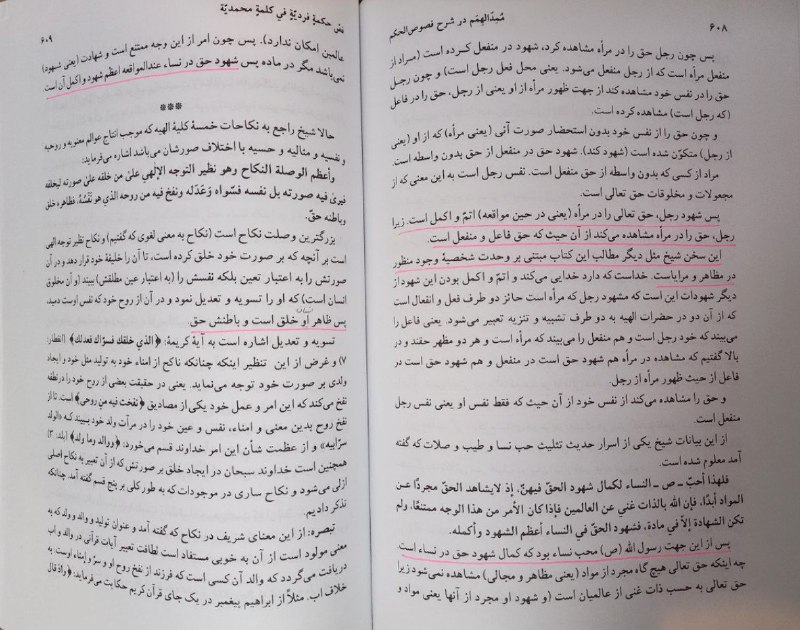 ۶۰۸
مُمِدّالهِمَم در شرح فصوص‌الحکم
پس چون رجل حق را در مرأه مشاهده کرد، شهود در منفعل کرده است (مراد از
منفعل مرأه است که از رجل منفعل می‌شود. یعنی محل فعل رجل است) و چون رجل
حق را در نفس خود مشاهده کند از جهت ظهور مرأه از او یعنی از رجل، حق را در فاعل
(که رجل است) مشاهده کرده است.
و چون حق را از نفس خود بدون استحضار صورت آنی (یعنی مرأه) که از او (یعنی
از رجل) متکوّن شده است (شهود کند). شهود حق در منفعل از حق بدون واسطه است.
مراد از کسی که بدون واسطه از حق منفعل است. نفس رجل است به این معنی که از
مجعولات و مخلوقات حق تعالی است.
پس شهود رجل، حق تعالی را در مرأه (یعنی در حین مواقعه) اتمّ و اکمل است. زیرا
رجل، حق را در مرأه مشاهده می‌کند از آن حیث که حق فاعل و منفعل است.
این سخن شیخ مثل دیگر مطالب این کتاب مبتنی بر وحدت شخصیهٔ وجود منظور
در مظاهر و مرایاست. خداست که دارد خدایی می‌کند و اتم و اکمل بودن این شهود از
دیگر شهودات این است که مشهود رجل که مرأه است حائز دو طرف فعل و انفعال است
که از آن دو در حضرات الهیه به دو طرف تشبیه و تنزیه تعبیر می‌شود. یعنی فاعل را
می‌بیند که خود رجل است و هم منفعل را می‌بیند که مرأه است و هر دو مظهر حقند و در
بالا گفتیم که مشاهده در مرأه هم شهود حق است در منفعل و هم شهود حق است در
فاعل از حیث ظهور مرأه از رجل.
و حق را مشاهده می‌کند از نفس خود از آن حیث که فقط نفس او یعنی نفس رجل
منفعل است.
از این بیانات شیخ یکی از اسرار حدیث تثلیث حب نسا و طیب و صلات که گفته
آمد معلوم شده است.
فلهذا أحبّ ـ ص ـ النساء لکمال شهود الحقّ فیهنّ. إذ لایشاهد الحقّ مجرّداً عن
المواد أبداً. فإن الله بالذات غني عن العالمین فإذا کان الأمر من هذا الوجه ممتنعاً، ولم
تکن الشهادة إلّا في مادة، فشهود الحقّ في النساء أعظم الشهود وأکمله.
پس از این جهت رسول الله (ص) محب نساء بود که کمال شهود حق در نساء است
چه اینکه حق تعالی هیچ گاه مجرد از مواد (یعنی مظاهر و مجالی) مشاهده نمی‌شود زیرا
حق تعالی به حسب ذات غنی از عالمیان است (و شهود او مجرد از آنها یعنی مواد و
فصّ حکمةٍ فردیّةٍ في کلمةٍ محمدیّة
۶۰۹
عالمین امکان ندارد). پس چون امر از این وجه ممتنع است و شهادت (یعنی شهود)
نمی‌باشد مگر در ماده پس شهود حق در نساء عندالمواقعه اعظم شهود و اکمل آن است
***
حالا شیخ راجع به نکاحات خمسهٔ کلیهٔ الهیه که موجب انتاج عوالم معنویه و روحیه
و نفسیه و مثالیه و حسیه با اختلاف صورشان می‌باشد اشاره می‌فرماید:
وأعظم الوصلة النکاح وهو نظیر التوجه الإلٰهي علیٰ من خلقه علیٰ صورته لیخلفه
فیریٰ فیه صورته بل نفسه فسّواه وَعَدّله ونفخ فیه من روحه الذي هو نَفْسُهُ. فظاهره خلق
وباطنه حقّ.
بزرگترین وصلت نکاح است (نکاح به معنی لغوی که گفتیم) و نکاح نظیر توجه الهی
است بر آنچه که بر صورت خود خلق کرده است، تا آن را خلیفهٔ خود قرار دهد و در آن
صورتش را به اعتبار تعین بلکه نفسش را (به اعتبار عین مطلقش) ببیند (و آن مخلوق
انسان است) که او را تسویه و تعدیل نمود و در آن از روح خود که نفس اوست دمید،
پس ظاهر او خلق است و باطنش حق.
تسویه و تعدیل اشاره است به آیهٔ کریمهٔ: ﴿الذي خلقك فسوّاك فعدلك﴾ (انفطار:
۷) و غرض از این تنظیر اینکه چنانکه ناکح از امناء خود به تولید مثل خود و ایجاد
ولدی بر صورت خود توجه می‌نماید. یعنی در حقیقت بعضی از روح خود را در نطفه
نفخ می‌کند که این امر و عمل خود یکی از مصادیق ﴿نفخت فیه من روحي﴾ است. تا از
نفخ روح بدین معنی و امناء، نفس و عین خود را در مرآت ولد خود ببیند کـه «الولد
سرّابیه» و از عظمت شأن این امر خداوند قسم می‌خورد: ﴿ووالد وما ولد﴾ (بلد: ۳)
همچنین است خداوند سبحان در ایجاد خلق بر صورتش که از آن تعبیر به نکاح اصلی
ازلی می‌شود و نکاح ساری در موجودات که به طور کلی بر پنج قسم گفته آمد. چنانکه
تذکر دادیم.
تبصره: از این معنای شریف در نکاح که گفته آمد و عنوان تولید و ولد و ولد که به
معنی مولود است از آن به خوبی مستفاد است لطافت تعبیر آیات قرآنی در والد و اب
دریافت می‌گردد که والد آن کسی است که فرزند از نفخ روح او و سرّ و امناء اوست. به
خلاف اب. مثلاً از ابراهیم پیغمبر در یک جای قرآن کریم حکایت می‌فرماید: ﴿واذ قال